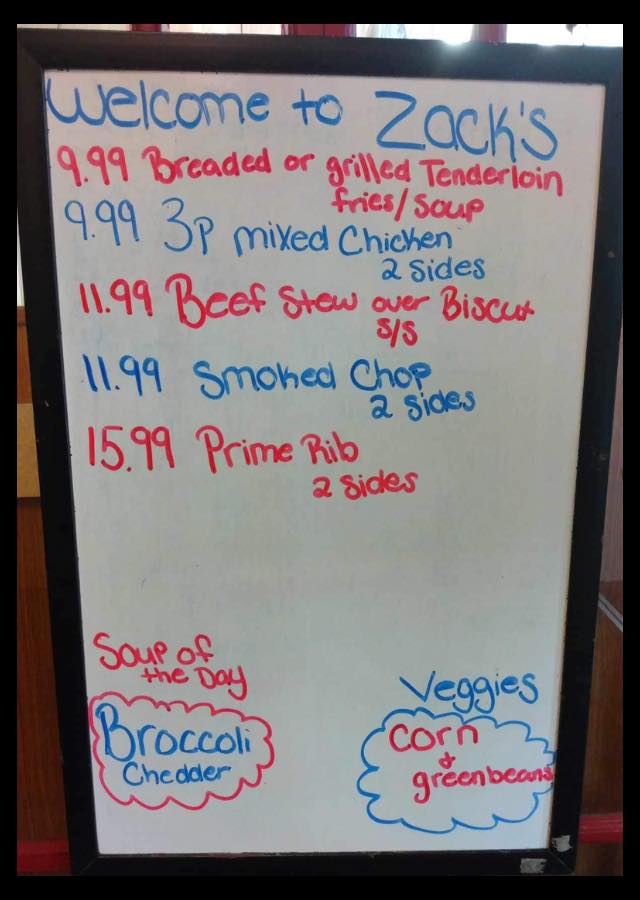 Welcome to Zack's
9.99 Breaded or grilled Tenderloin
fries/soup
9.99 3p mixed Chicken
2 sides
11.99 Beef Stew over Biscut
s/s
11.99 Smoked Chop
2 sides
15.99 Prime Rib
2 sides
Soup of
the Day
Broccoli
Chedder
Veggies
corn
&
greenbeans